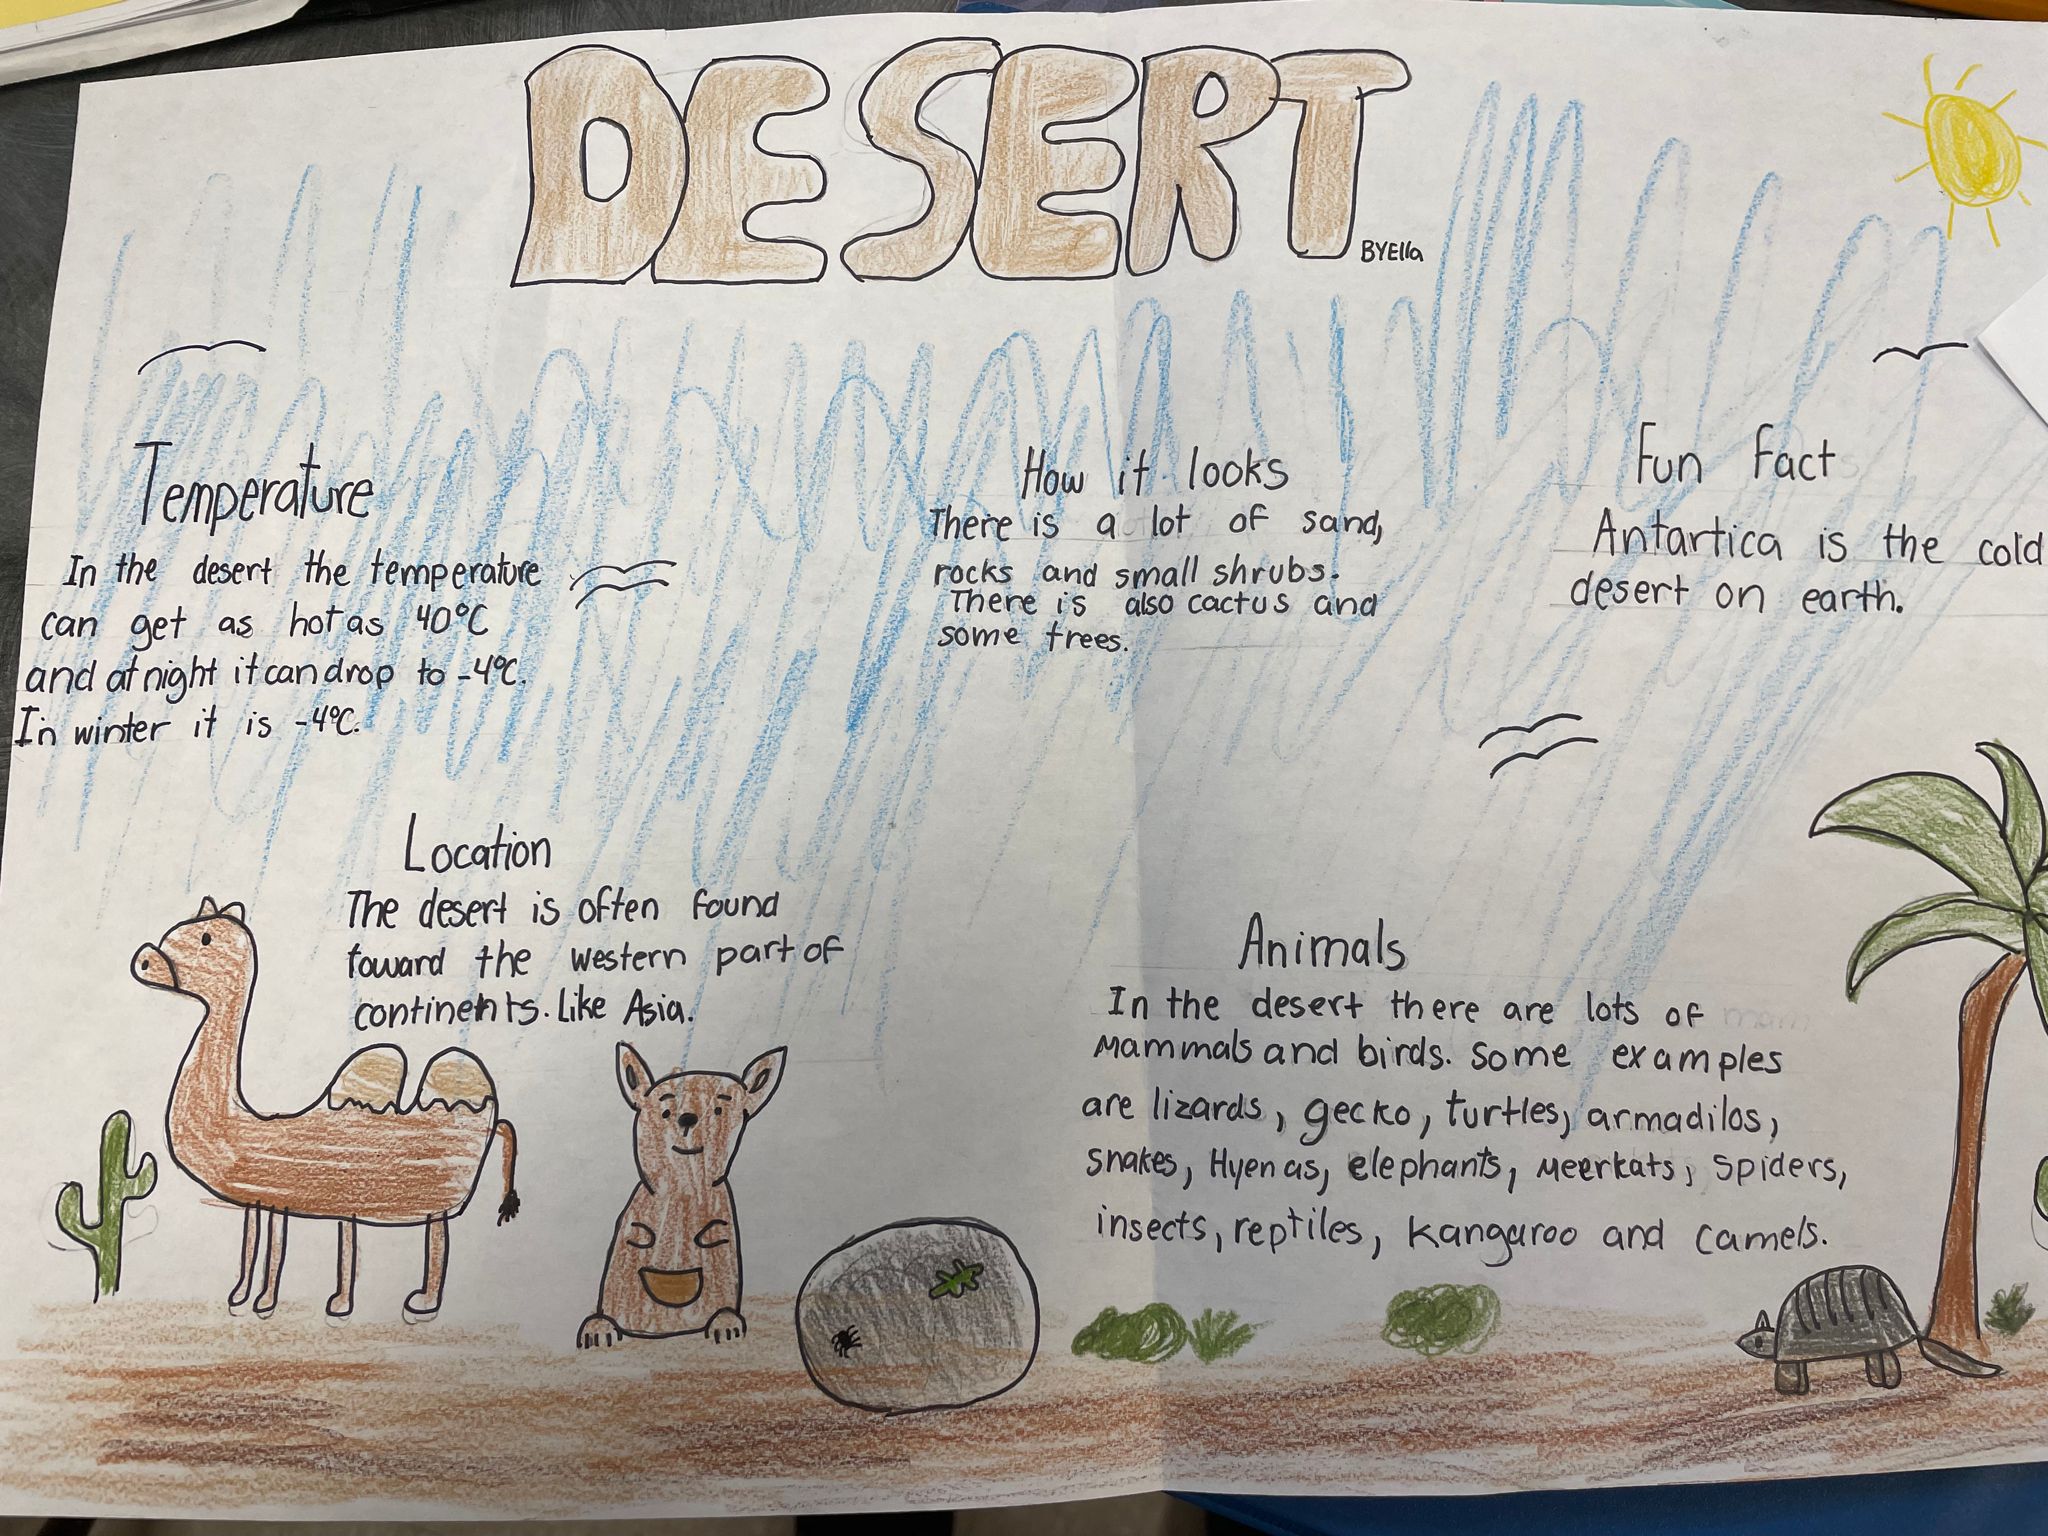 DESERT
BYElla
Temperature
In the desert the temperature
can get as hot as 40°C
and at night it can drop to -4°C.
In winter it is -4°C.
How it looks
There is a lot of sand,
rocks and small shrubs.
There is also cactus and
some trees.
Fun Fact
Antartica is the cold
desert on earth.
Location
The desert is often found
toward the western part of
continents. Like Asia.
Animals
In the desert there are lots of
Mammals and birds. Some examples
are lizards, gecko, turtles, armadilos,
snakes, Hyenas, elephants, Meerkats, spiders,
insects, reptiles, kangaroo and camels.